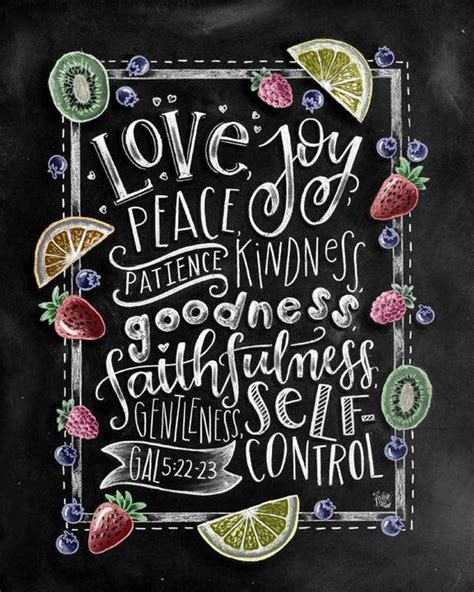 LOVE, Joy
PEACE,
PATIENCE KINDNESS,
goodness,
faithfulness,
GENTLENESS, SELF-
GAL 5:22-23 CONTROL